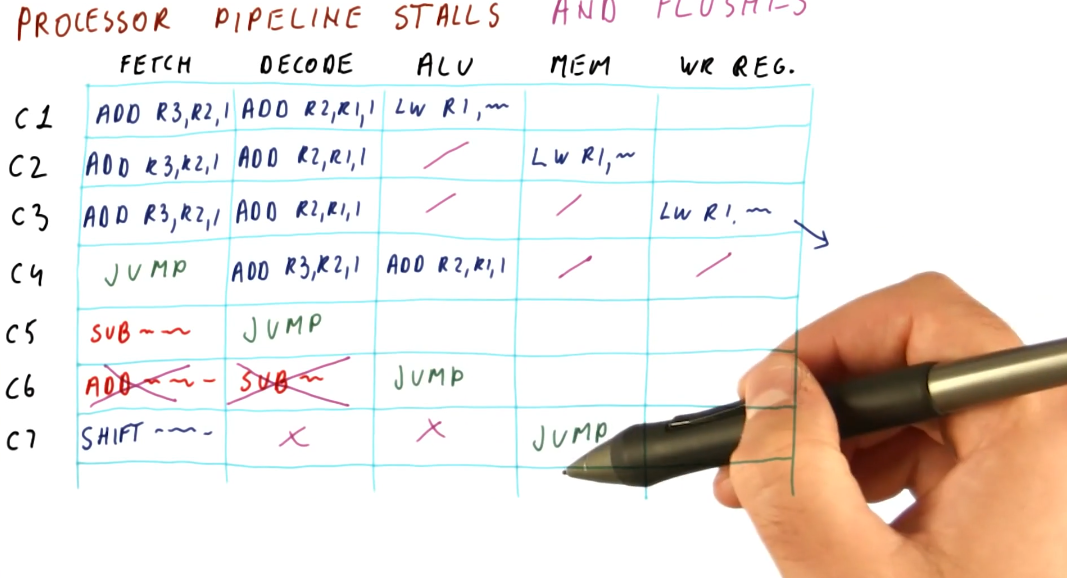 PROCESSOR PIPELINE STALLS AND FLUSHES
FETCH DECODE ALU MEM WR REG.
C1 ADD R3,R2,1 ADD R2,R1,1 LW R1,
C2 ADD R3,R2,1 ADD R2,R1,1 LW R1,
C3 ADD R3,R2,1 ADD R2,R1,1 LW R1,
C4 JUMP ADD R3,R2,1 ADD R2,R1,1
C5 SUB JUMP
C6 ADD SUB JUMP
C7 SHIFT X X JUMP